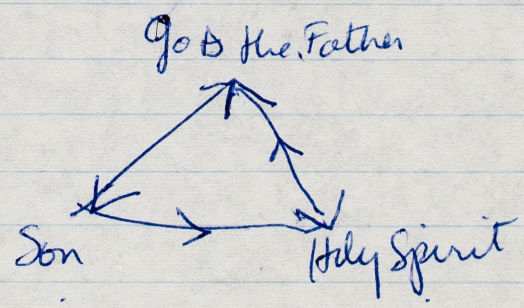 God the Father
Son
Holy Spirit